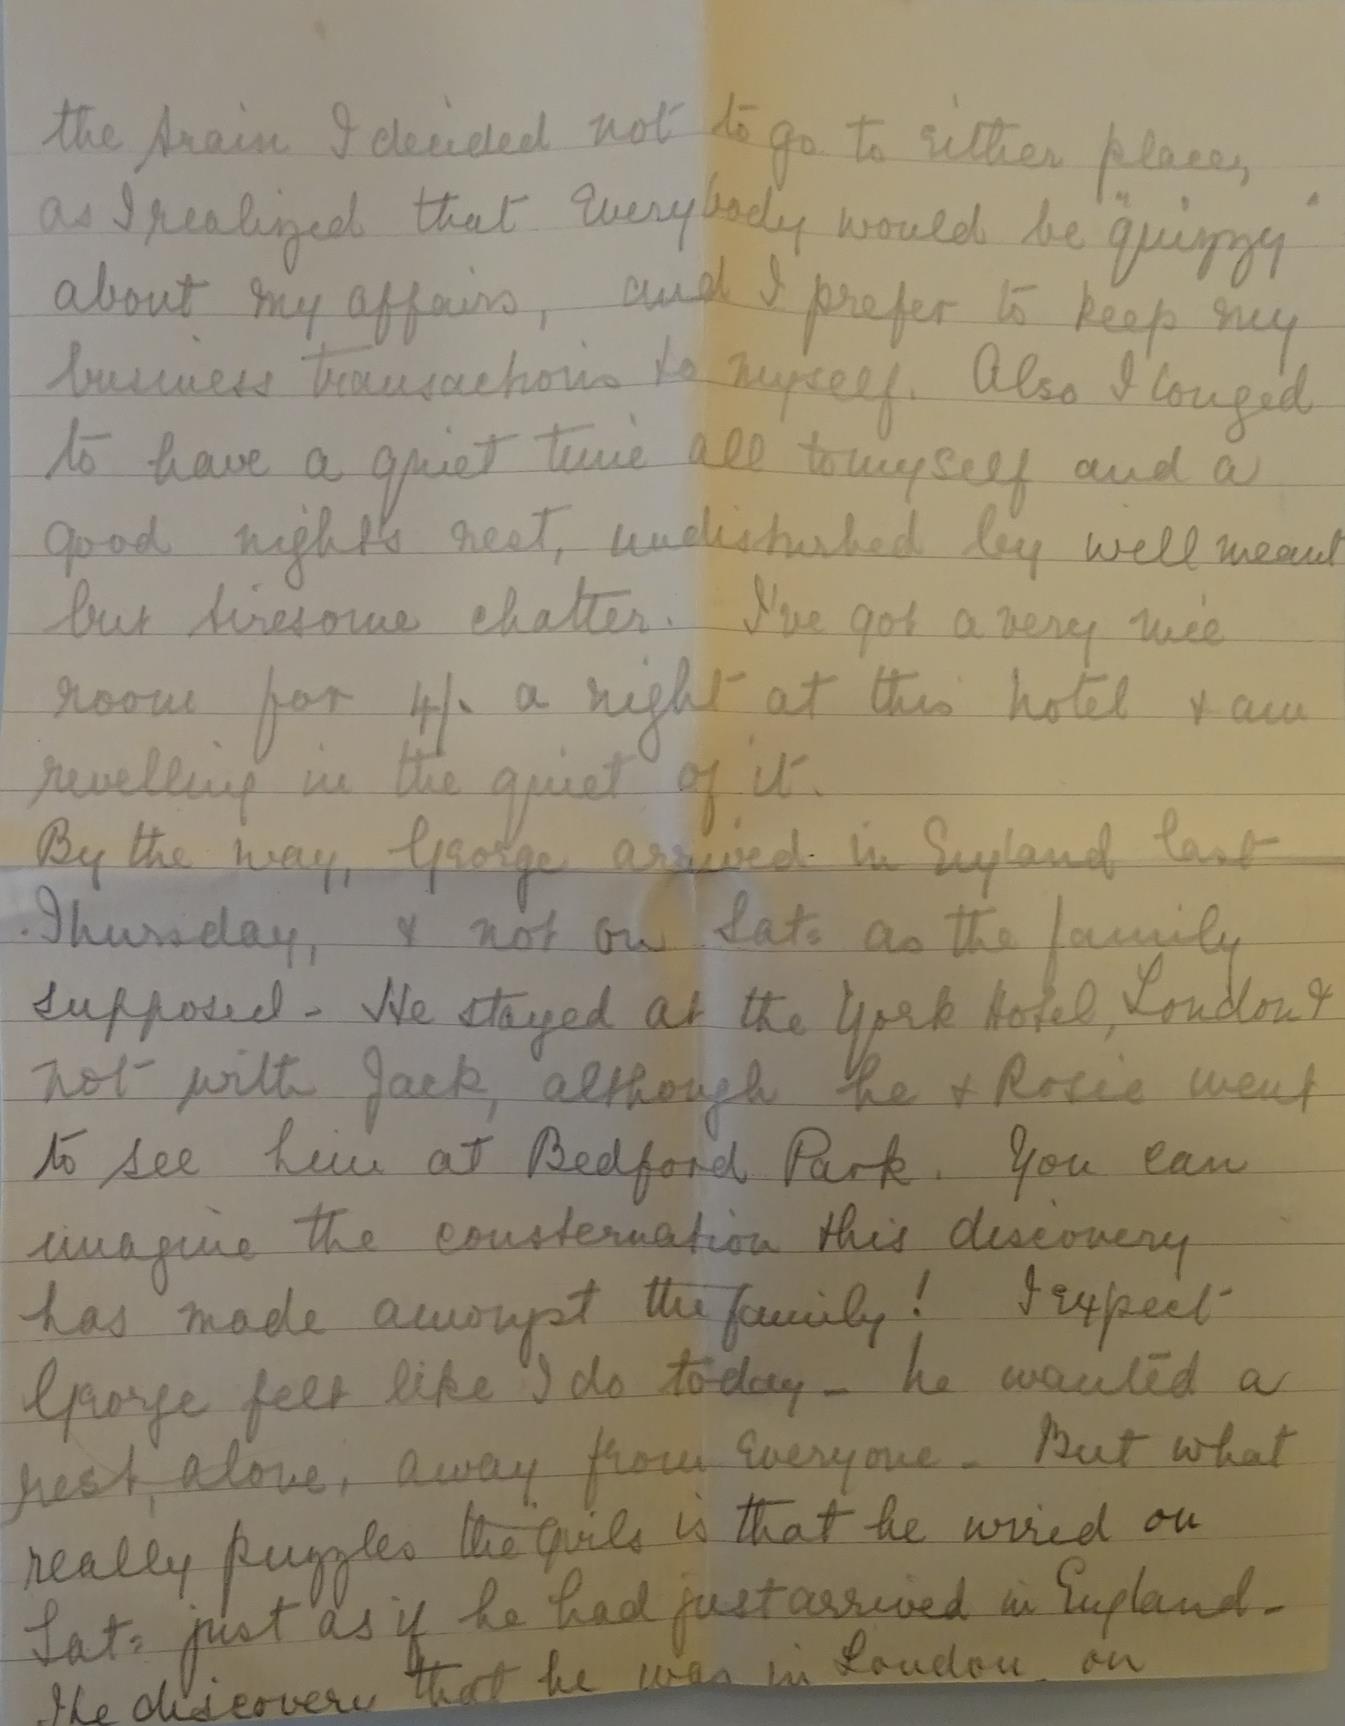 the train I decided not to go to either place,
as I realized that Everybody would be "quizzy"
about my affairs, and I prefer to keep my
business transactions to myself. Also I longed
to have a quiet time all to myself and a
good night's rest, undisturbed by well meant
but tiresome chatter. I've got a very nice
room for 4/- a night at this hotel & am
revelling in the quiet of it.
By the way, George arrived in England last
Thursday, & not on Sat: as the family
supposed - He stayed at the York Hotel, London &
not with Jack, although he & Rosie went
to see him at Bedford Park. You can
imagine the consternation this discovery
has made amongst the family! I expect
George felt like I do today - he wanted a
rest, alone, away from Everyone - But what
really puzzles the girls is that he wired on
Sat: just as if he had just arrived in England -
The discovery that he was in London on